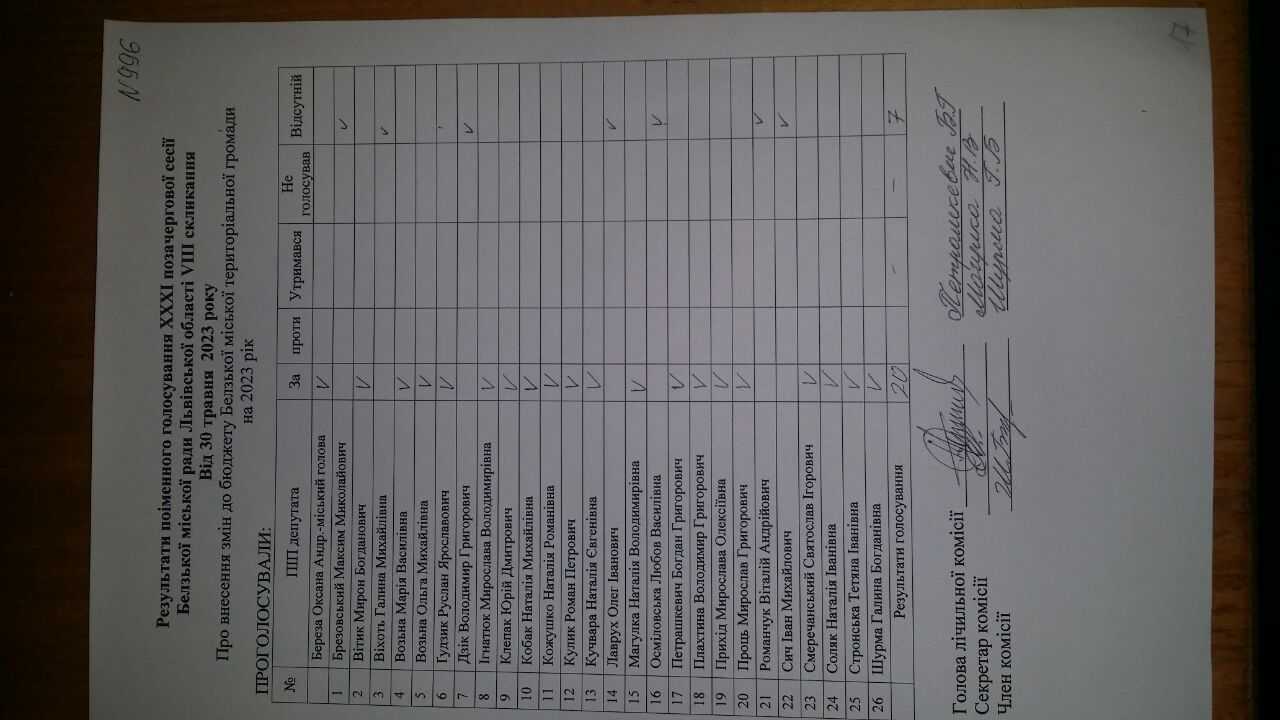 N996
Результати поіменного голосування XXXI позачергової сесії
Белзької міської ради Львівської області VIII скликання
Від 30 травня 2023 року
Про внесення змін до бюджету Белзької міської територіальної громади
на 2023 рік
ПРОГОЛОСУВАЛИ:
№ ПІП депутата За проти Утримався Не голосував Відсутній
Береза Оксана Андр.-міський голова V
1 Брезовський Максим Миколайович V
2 Вітик Мирон Богданович V
3 Віхоть Галина Михайлівна V
4 Возьна Марія Василівна V
5 Возьна Ольга Михайлівна V
6 Гудзик Руслан Ярославович V
7 Дзік Володимир Григорович V
8 Ігнатюк Мирослава Володимирівна V
9 Клепак Юрій Дмитрович V
10 Кобак Наталія Михайлівна V
11 Кожушко Наталія Романівна V
12 Кулик Роман Петрович V
13 Кучвара Наталія Євгенівна V
14 Лаврух Олег Іванович V
15 Магулка Наталія Володимирівна V
16 Осміловська Любов Василівна V
17 Петрашкевич Богдан Григорович V
18 Плахтина Володимир Григорович V
19 Прихід Мирослава Олексіївна V
20 Проць Мирослав Григорович V
21 Романчук Віталій Андрійович V
22 Сич Іван Михайлович V
23 Смеречанський Святослав Ігорович V
24 Соляк Наталія Іванівна V
25 Стронська Тетяна Іванівна V
26 Шурма Галина Богданівна V
Результати голосування 20 - - 7
Голова лічильної комісії Петрашкевич Б.Г
Секретар комісії Магулка Н.В
Член комісії Шурма Г.Б
17